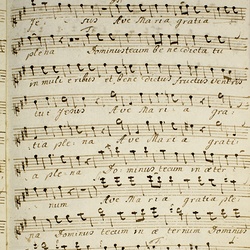 Je- sus Ave Maria gratia
plena Dominus tecum benedicta tu
in mulieribus et benedictus fructus ventris
tui Jesus Ave Maria gra-
tia ple- na Ave Maria grati
a plena Dominus tecum in æter-
num Ave Maria gratia ple-
na Dominus tecum in æter-